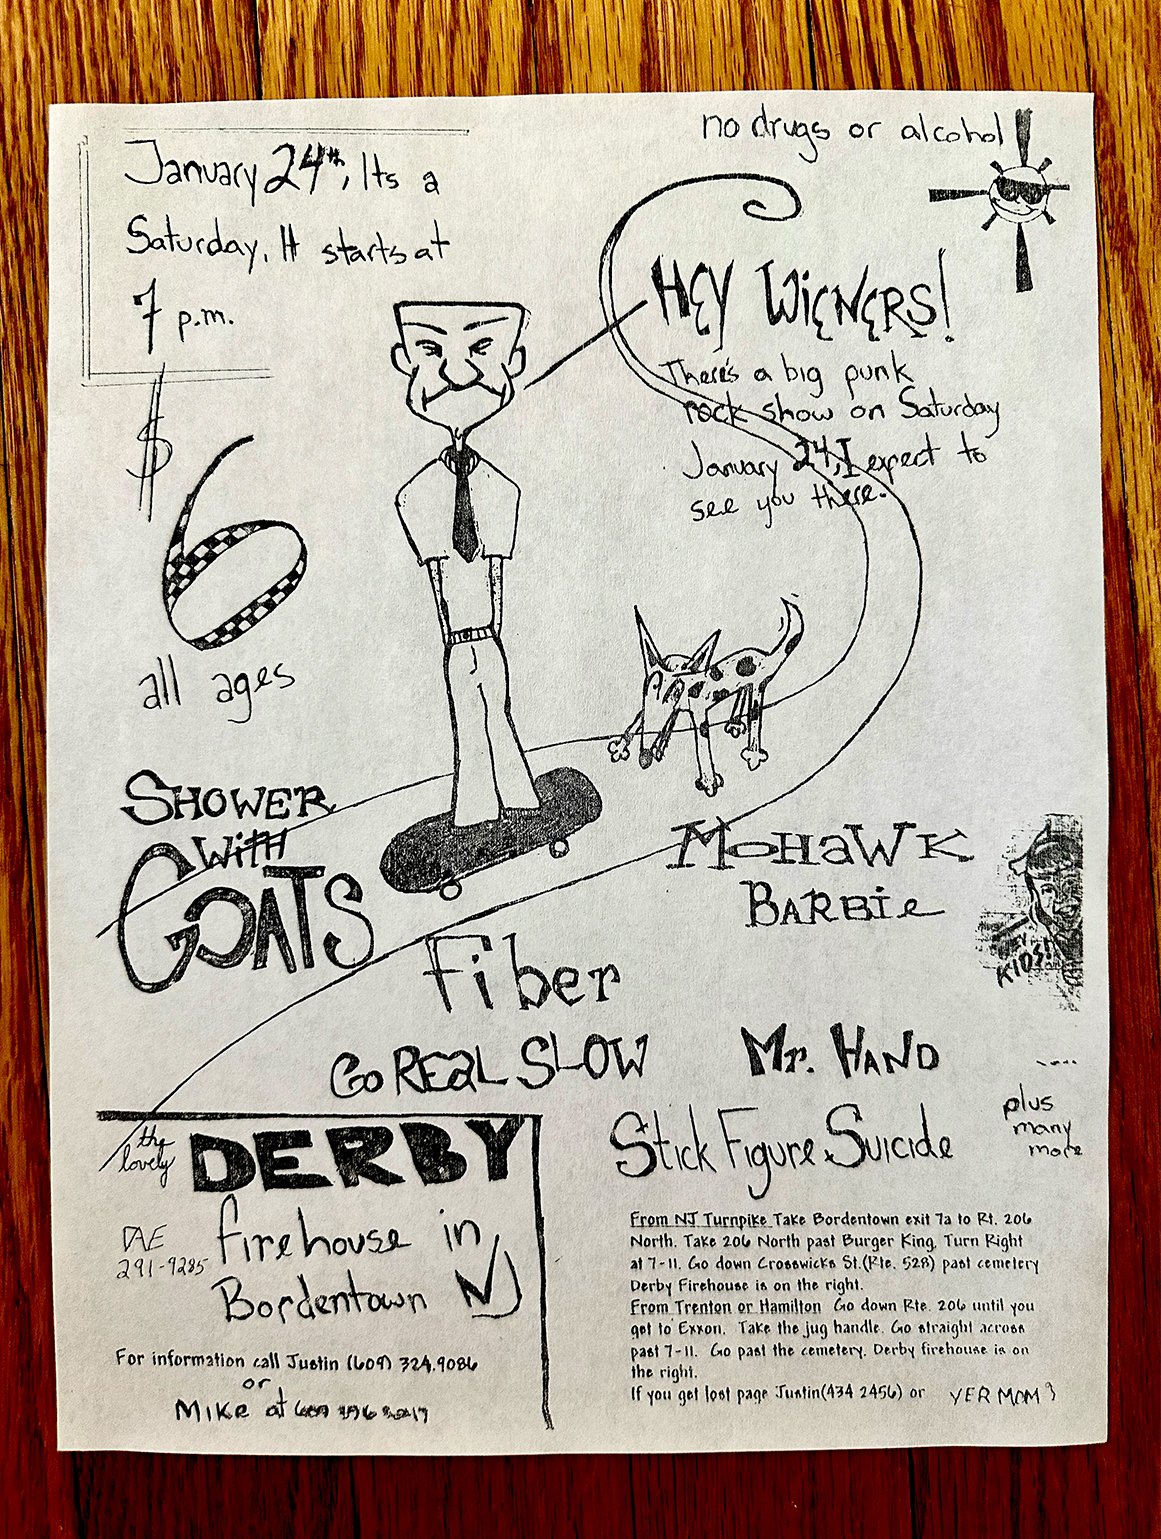 no drugs or alcohol
January 24th, Its a
Saturday, It starts at
7 p.m.
$6
all ages
HEY WiENERS!
There's a big punk
rock show on Saturday
January 24, I expect to
see you there.
SHOWER
WitH
GOATS
MOHaWK
BARBie
KIDS!
Fiber
GO REaL SLOW
Mr. HAND
Stick Figure Suicide
plus
many
more
the
lovely
DERBY
firehouse in
Bordentown NJ
291-9285
For information call Justin (609) 324.9086
or
MiKe at 609
From NJ Turnpike Take Bordentown exit 7a to Rt. 206
North. Take 206 North past Burger King, Turn Right
at 7-11. Go down Crosswicks St.(Rte. 528) past cemetery
Derby Firehouse is on the right.
From Trenton or Hamilton Go down Rte. 206 until you
get to Exxon. Take the jug handle. Go straight across
past 7-11. Go past the cemetery. Derby firehouse is on
the right.
If you get lost page Justin(434 2456) or YER MOM